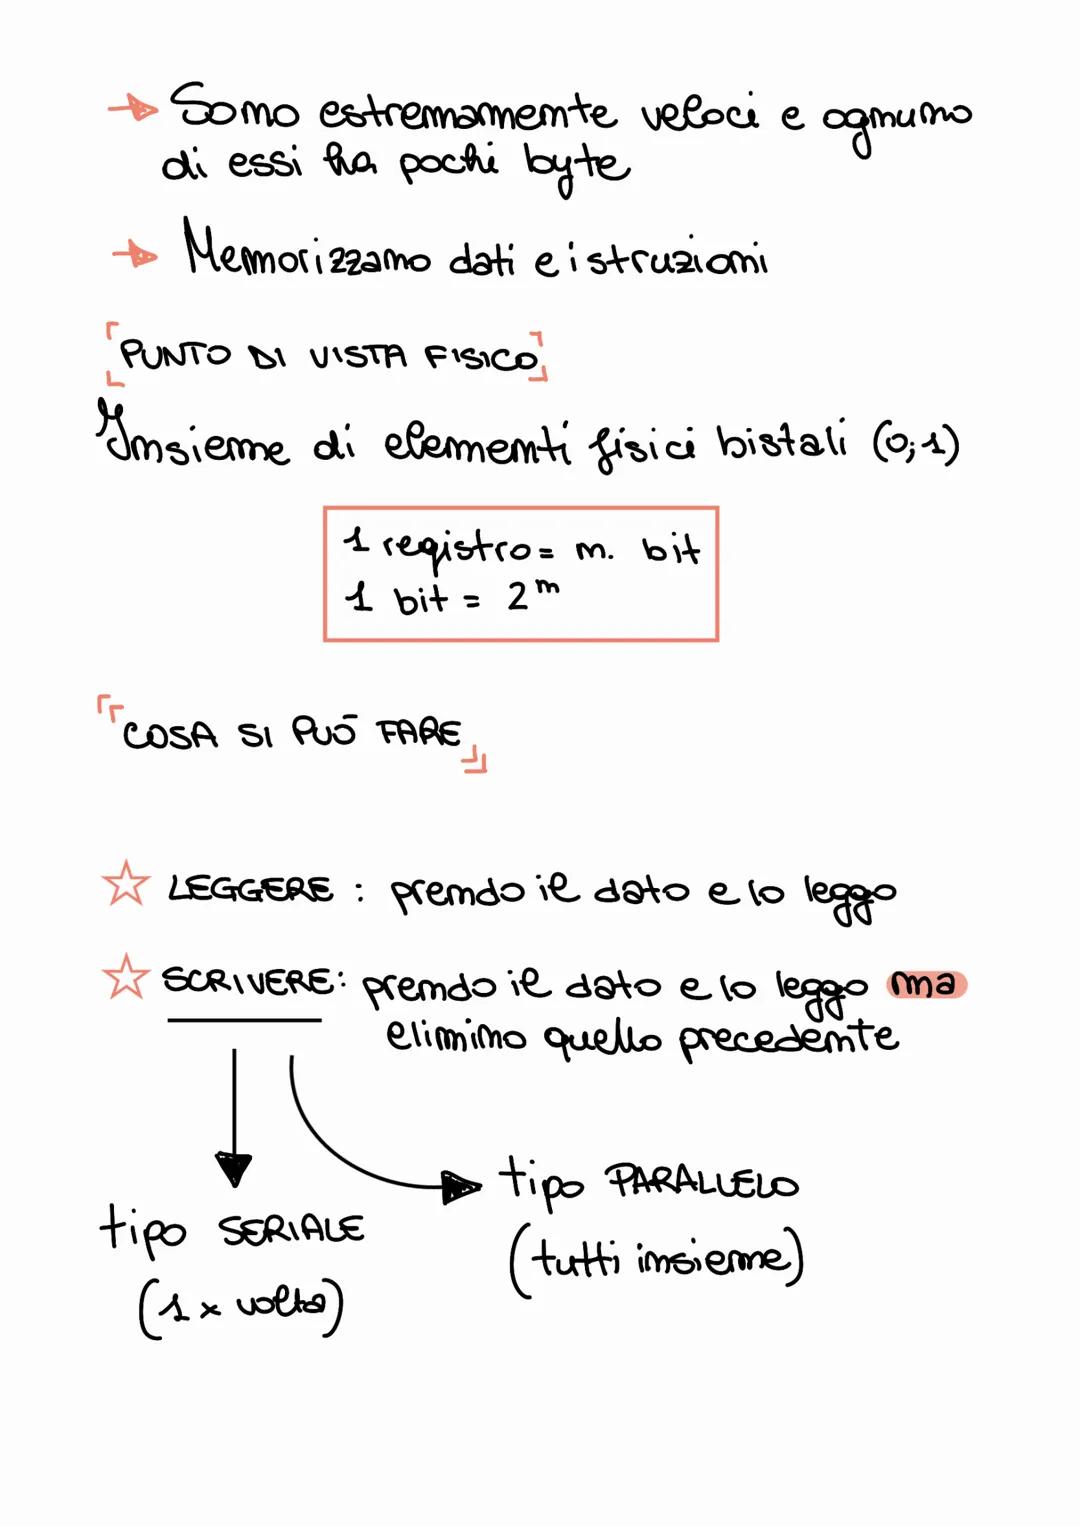 Sono estremamente veloci e ognuno
di essi ha pochi byte
Memorizzano dati e istruzioni
PUNTO DI VISTA FISICO
Insieme di elementi fisici bistali (0;1)
1 registro = n. bit
1 bit = 2^n
COSA SI PUÒ FARE
LEGGERE : prendo il dato e lo leggo
SCRIVERE: prendo il dato e lo leggo ma
elimino quello precedente
tipo PARALLELO
tipo SERIALE
(tutti insieme)
(1 x volta)